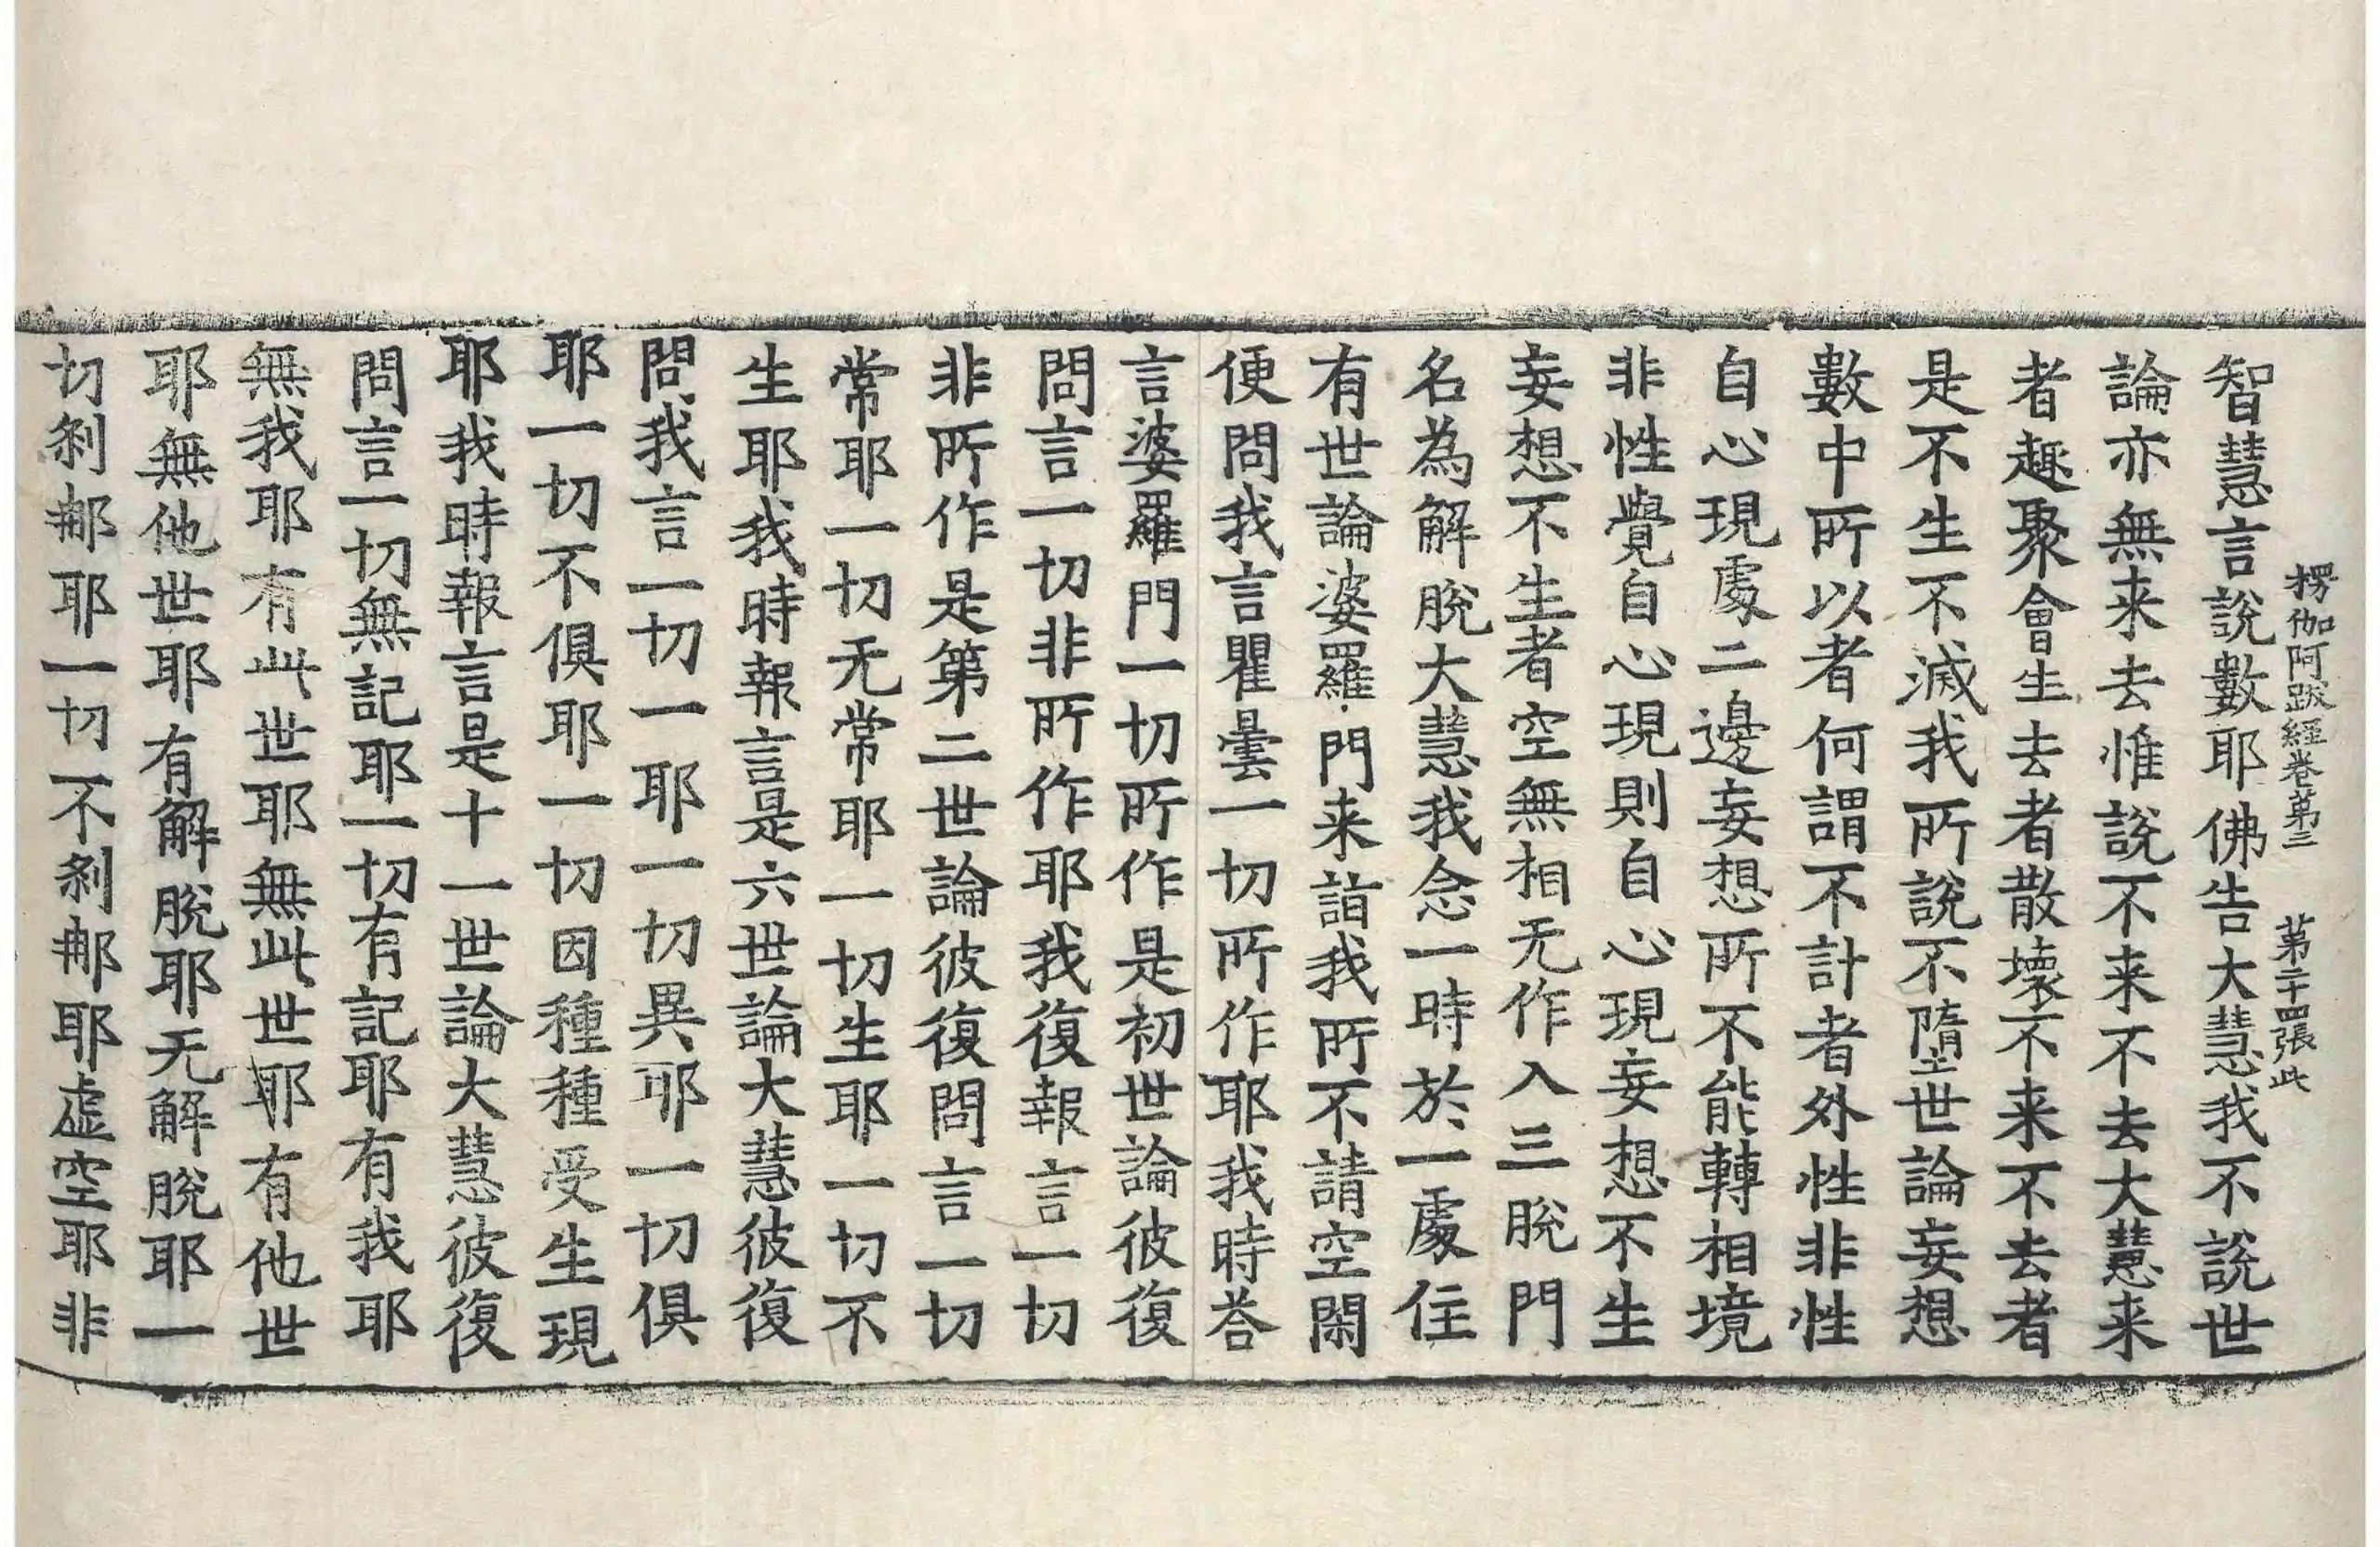 楞伽阿跋經卷苐三　苐二十四張此
智慧言說數耶佛告大慧我不說世
論亦無来去惟說不来不去大慧来
者趣聚會生去者散壞不来不去者
是不生不滅我所說不墮世論妄想
數中所以者何謂不計者外性非性
自心現處二邊妄想所不能轉相境
非性覺自心現則自心現妄想不生
妄想不生者空無相无作入三脫門
名為解脫大慧我念一時於一處住
有世論婆羅門来詣我所不請空閑
便問我言瞿曇一切所作耶我時荅
言婆羅門一切所作是初世論彼復
問言一切非所作耶我復報言一切
非所作是第二世論彼復問言一切
常耶一切无常耶一切生耶一切不
生耶我時報言是六世論大慧彼復
問我言一切一耶一切異耶一切俱
耶一切不俱耶一切因種種受生現
耶我時報言是十一世論大慧彼復
問言一切無記耶一切有記耶有我耶
無我耶有此世耶無此世耶有他世
耶無他世耶有解脫耶无解脫耶一
切剎那耶一切不剎那耶虛空耶非